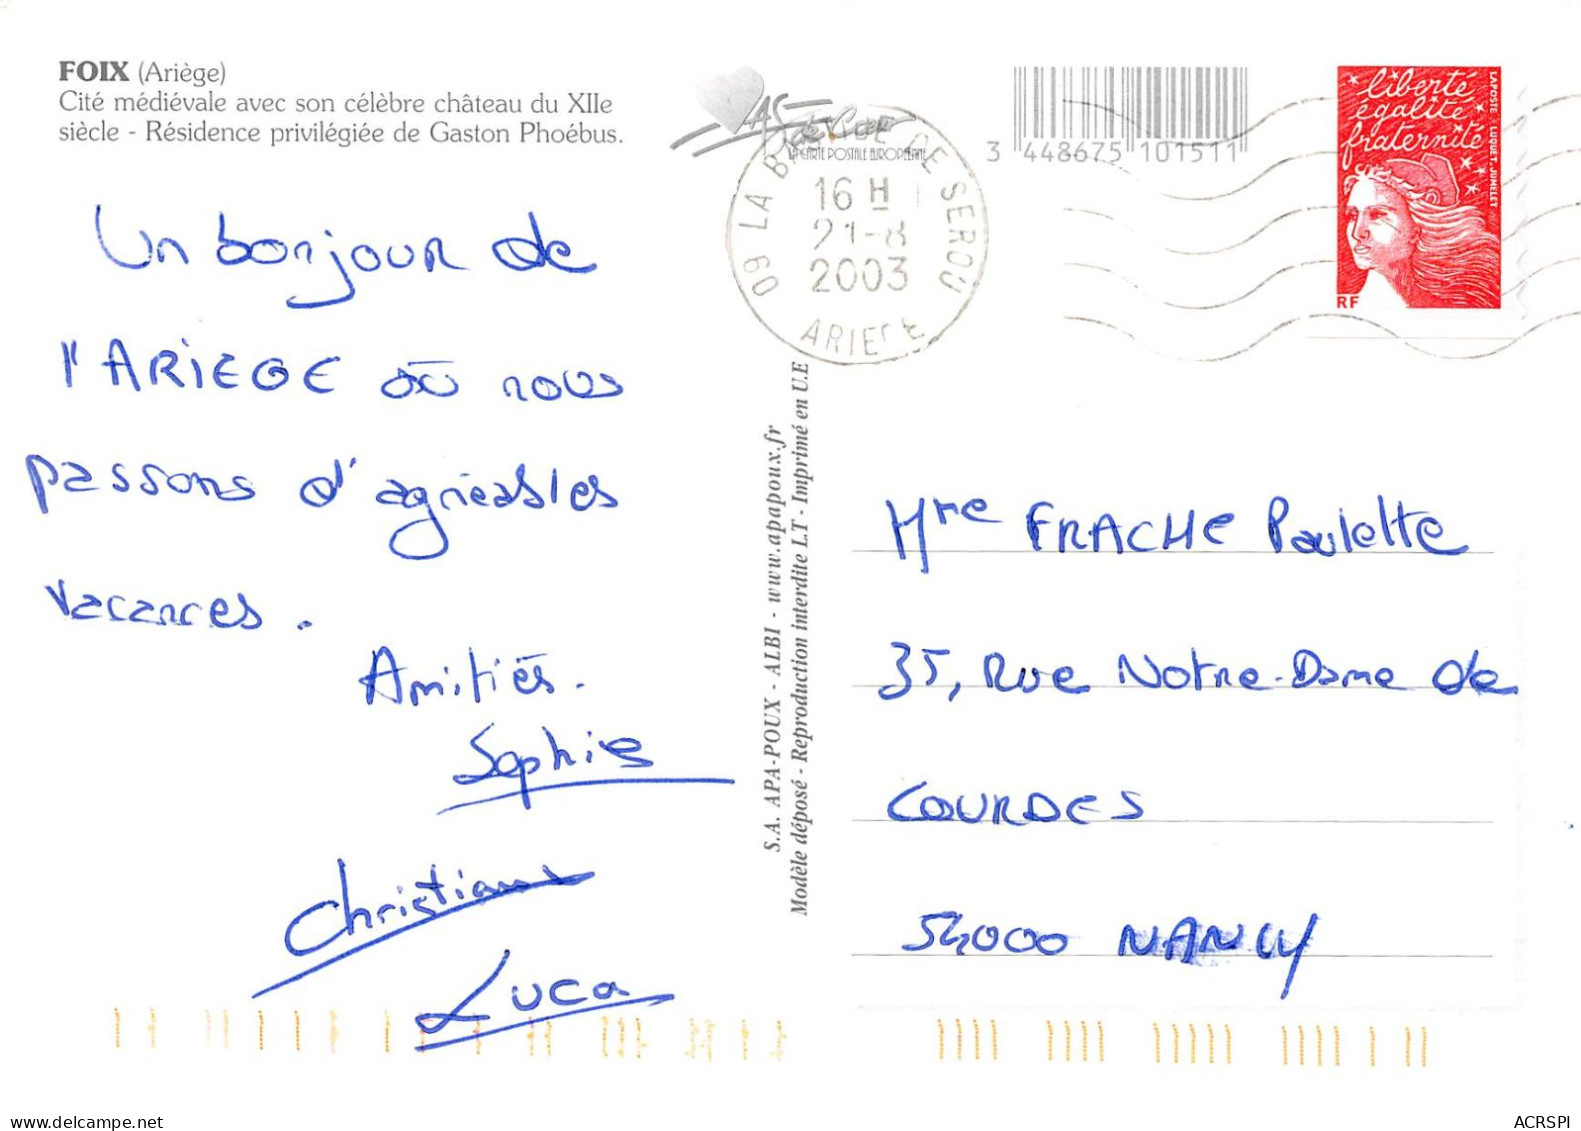 FOIX (Ariège)
Cité médiévale avec son célèbre château du XIIe
siècle - Résidence privilégiée de Gaston Phoébus.
LA CARTE POSTALE EUROPÉENNE
09 LA BASTIDE DE SEROU
16 H
21-8
2003
ARIEGE
3 448675 101511
liberté
égalité
fraternité
LA POSTE LUQUET, JUMELET
RF
Un bonjour de
l'ARIEGE où nous
passons d'agréables
vacances.
Amitiés.
Sophie
Christian
Luca
S.A. APA-POUX - ALBI - www.apapoux.fr
Modèle déposé - Reproduction interdite LT - Imprimé en U.E
Mme FRACHE Paulette
35, Rue Notre-Dame de
LOURDES
54000 NANCY
delcampe.net
ACRSPI